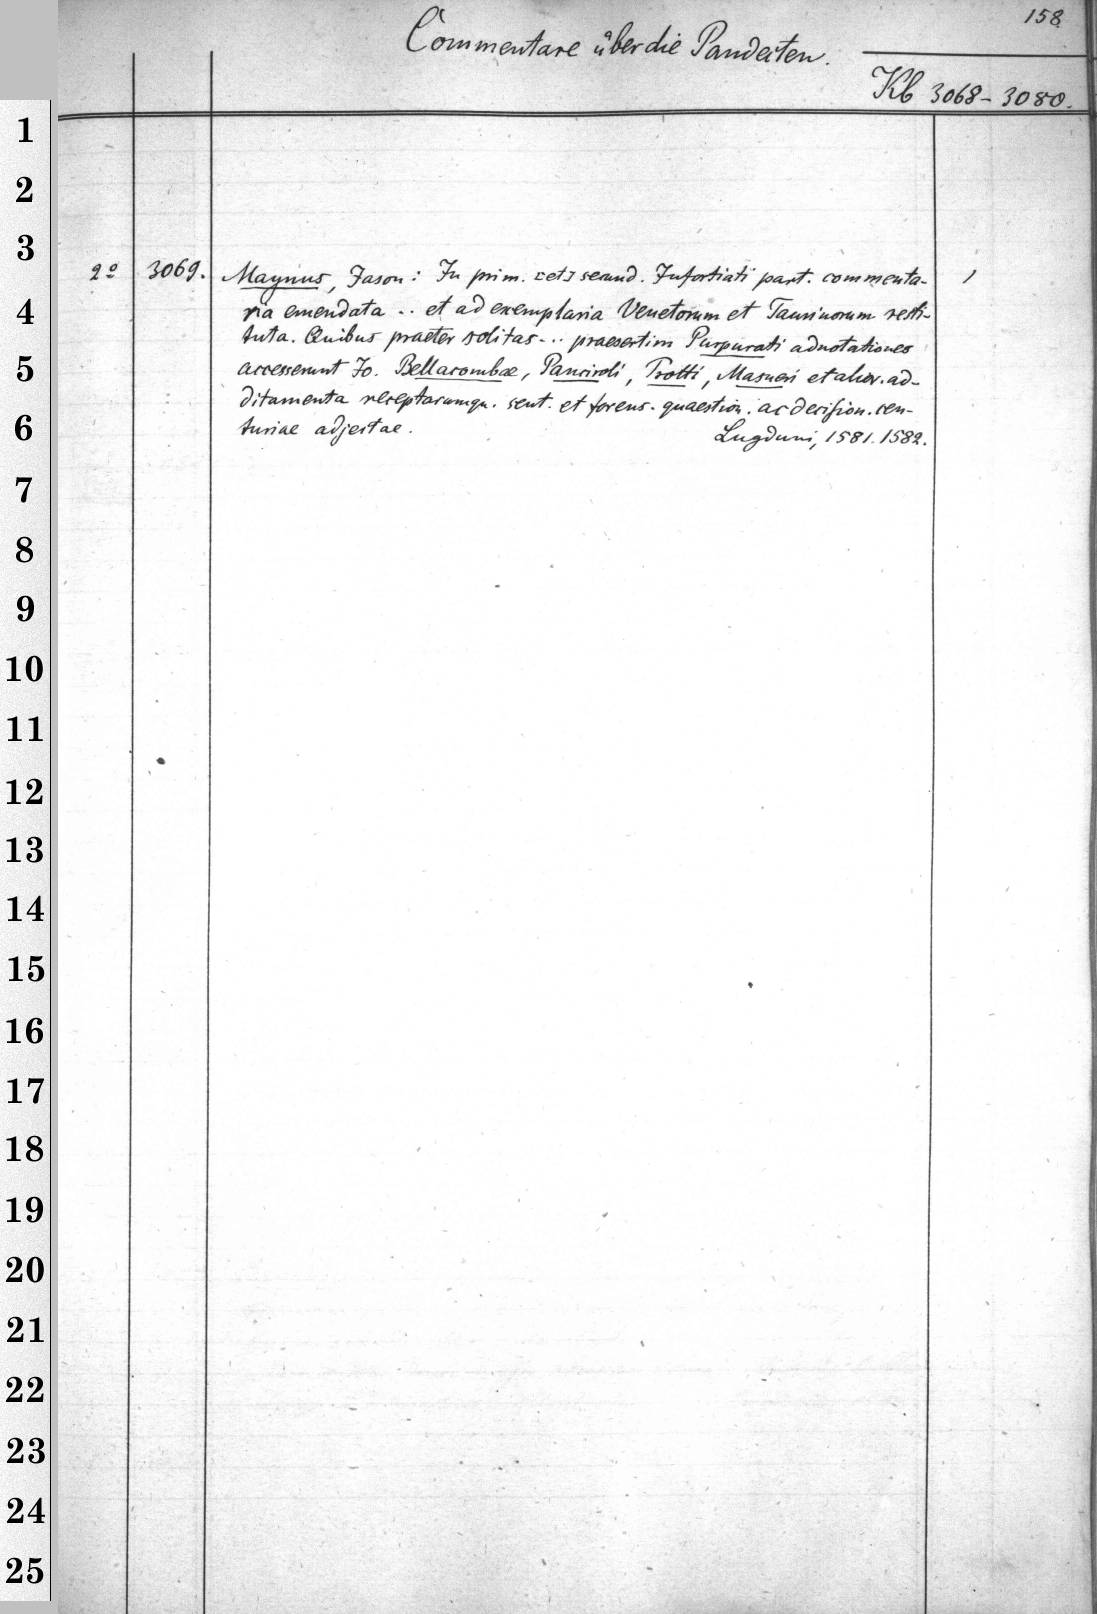 158
Commentare über die Pandecten.
Kb 3068-3080.
2º 3069. Maynus, Jason: In prim. [et] secund. Infortiati part. commenta- 1
ria emendata .. et ad exemplaria Venetorum et Taurinorum resti-
tuta. Quibus praeter solitas... praesertim Purpurati adnotationes
accesserunt Jo. Bellacombae, Panciroli, Trotti, Masueri et alior. ad-
ditamenta receptarumqu. sent. et forens. quaestion. ac decision. cen-
turiae adjectae.
Lugduni, 1581. 1582.
1
2
3
4
5
6
7
8
9
10
11
12
13
14
15
16
17
18
19
20
21
22
23
24
25